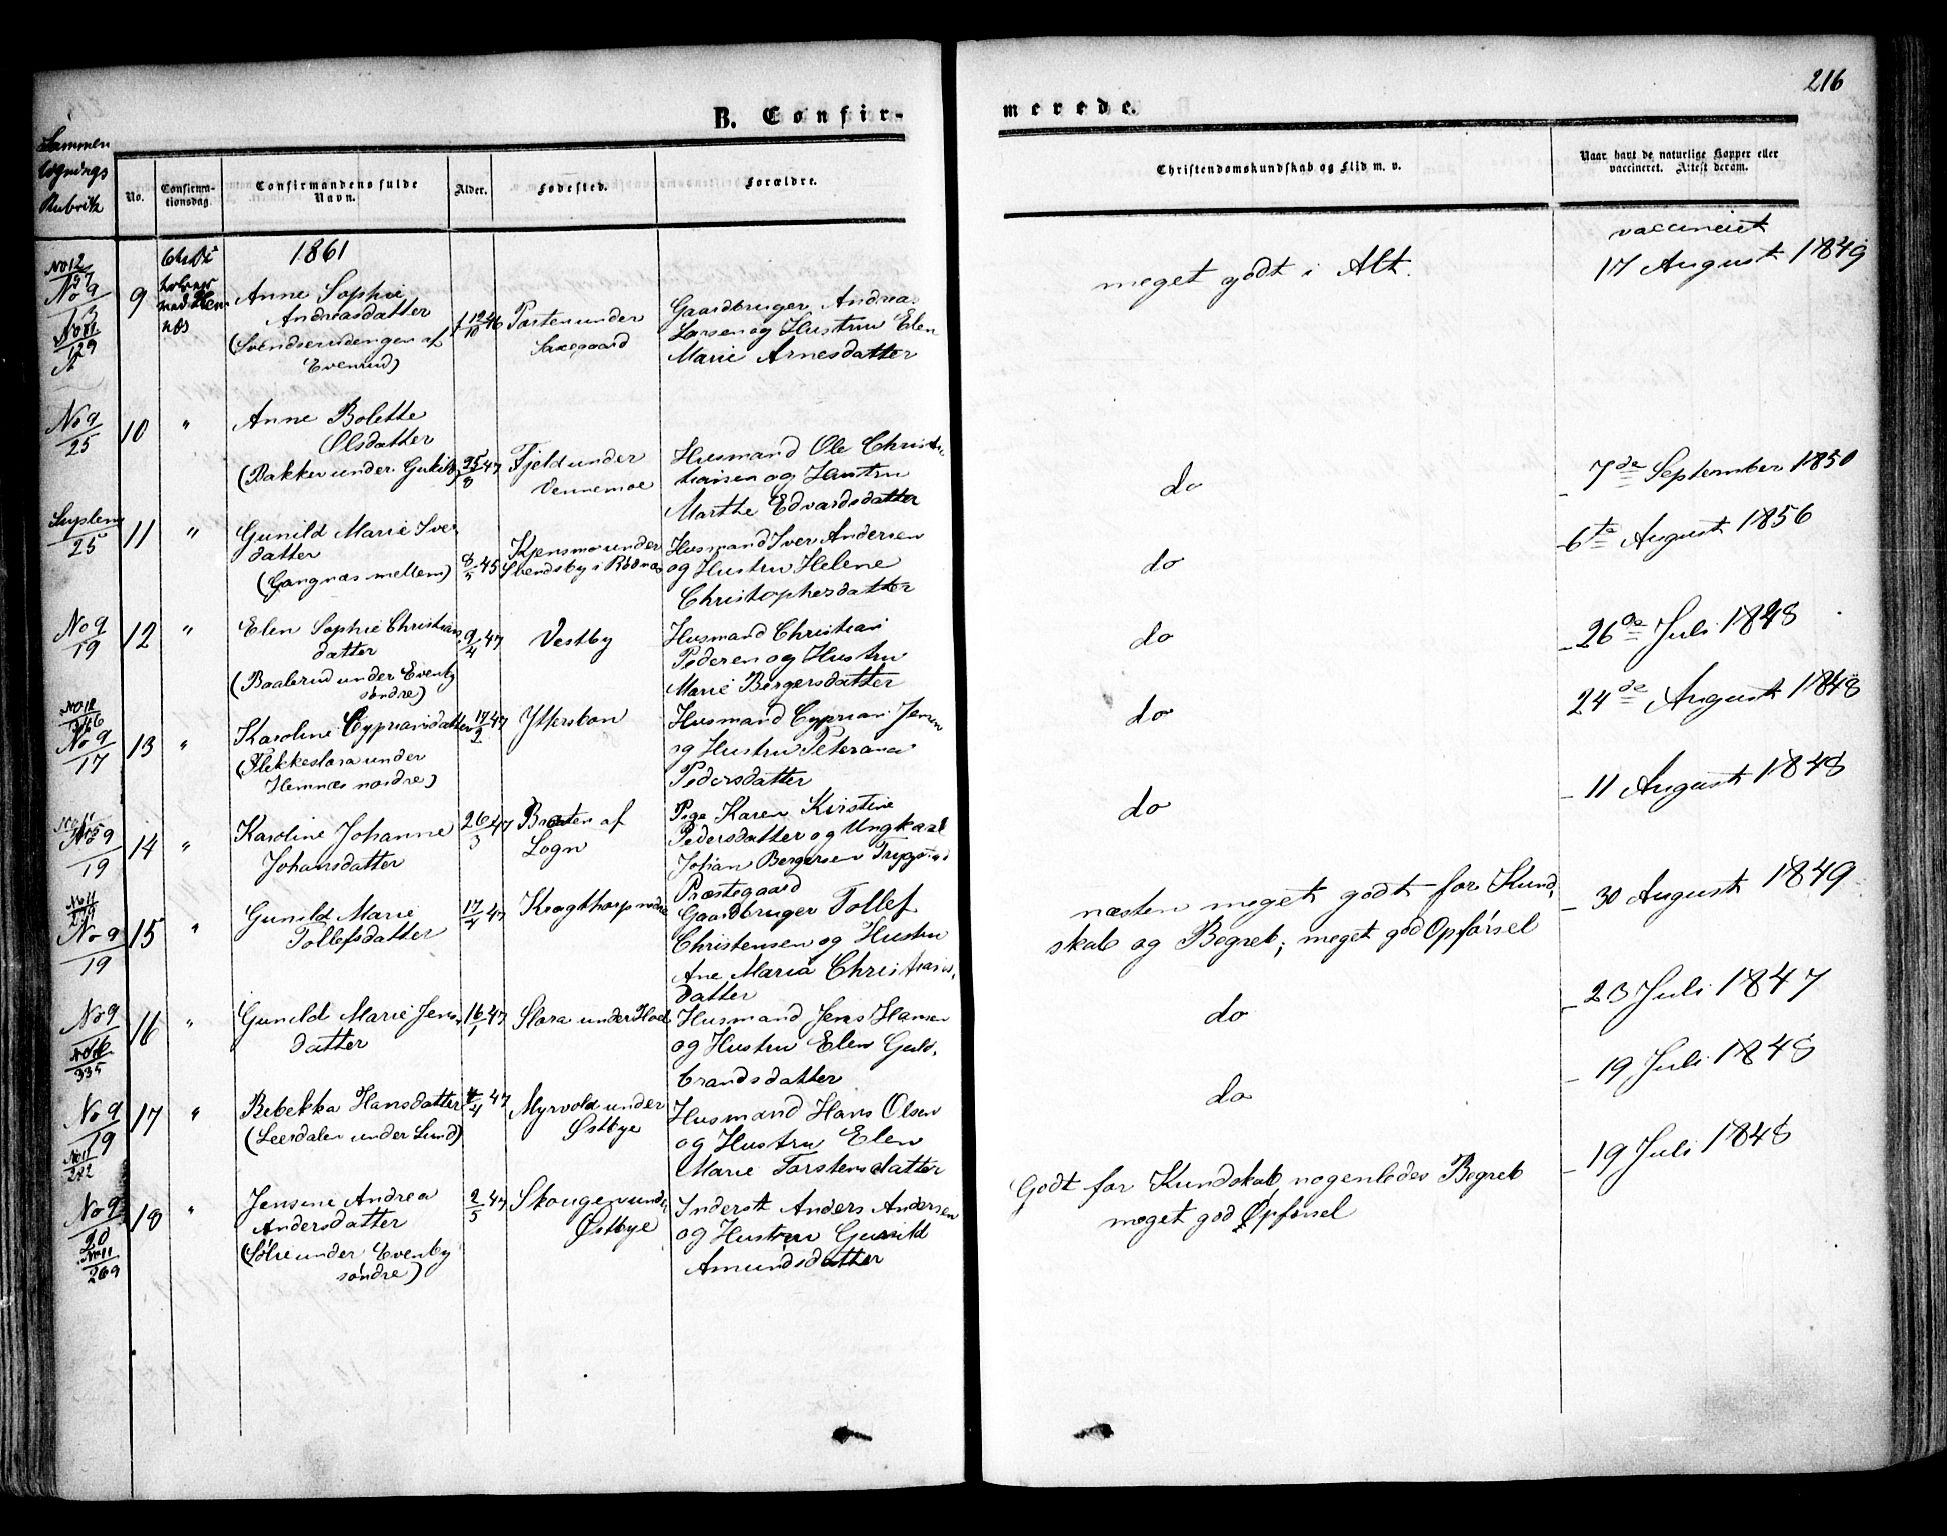 216
B. Confirmerede.
Sammen
lignings
Rubrik
No.
Confirma-
tionsdag.
Confirmandens fulde
Navn.
Alder.
Fødested.
Forældre.
Christendomskundskab og Flid m. v.
Naar havt de naturlige Kopper eller
vaccineret. Attest derom.
1861
vaccineret
No 9
9
6te
Octbr
Anne Sophie
Andreasdatter
(Svendserudengen af
Evenrud)
12/10 46
Porten under
Saxegaard
Gaardbruger Andreas
Larsen og Hustru Elen
Marie Arnesdatter
meget godt i Alt.
17 August 1849
No 9
25
10
"
Anne Bolette
Olsdatter
(Bakken under Gukild)
25/8 47
Fjeld under
Vennemoe
Husmand Ole Christi
tiansen og Hustru
Marthe Edvardsdatter
do
- 7de September 1850
Suplem
25
11
"
Gunild Marie Iver
datter
(Gangnæs mellem)
8/5 45
Kjensmo under
Svendsby i Rødnæs
Husmand Iver Andersen
og Hustru Helene
Christophersdatter
do
- 6te August 1856
No 9
19
12
"
Elen Sophie Christians
datter
(Baaberud under Evenby
søndre)
9/4 47
Vestby
Husmand Christian
Pedersen og Hustru
Marie Bergersdatter
do
- 26de Juli 1848
No 9
17
13
"
Karoline Cypriansdatter
(Flekkeslora under
Hemnæs nordre)
17/2 47
Ytterstan
Husmand Cyprian Jensen
og Hustru Peterana
Pedersdatter
do
24de August 1848
No 9
19
14
"
Karoline Johanne
Johansdatter
26/3 47
Braaten af
Sogn
Pige Karen Kirstine
Pedersdatter og Ungkarl
Johan Bergersen Trygstad
Præstegaard
do
- 11 August 1848
No 11
No 9
19
15
"
Gunild Marie
Tollefsdatter
17/4 47
Kragthorp nedre
Gaardbruger Tollef
Christensen og Hustru
Ane Maria Christians,
datter
næsten meget godt for Kund,
skab og Begreb; meget god Opførsel
- 30 August 1849
No 9
No 16
335
16
"
Gunild Marie Jens
datter
16/1 47
Slora under Hoel
Husmand Jens Hansen
og Hustru Elen Guld,
brandsdatter
do
- 23 Juli 1847
No 9
19
No 11
272
17
"
Rebekka Hansdatter
(Leersdalen under Lund)
4/4 47
Myrvold under
Østbye
Husmand Hans Olsen
og Hustru Elen
Marie Torstensdatter
do
- 19 Juli 1848
No 9
20
No 11
269
18
"
Jensine Andrea
Andersdatter
(Sølie under Evenby
søndre)
2/5 47
Skougen under
Østbye
Inderst Anders Andersen
og Hustru Gunild
Amundsdatter
Godt for Kundskab, nogenledes Begreb
meget god Opførsel
- 19 Juli 1848